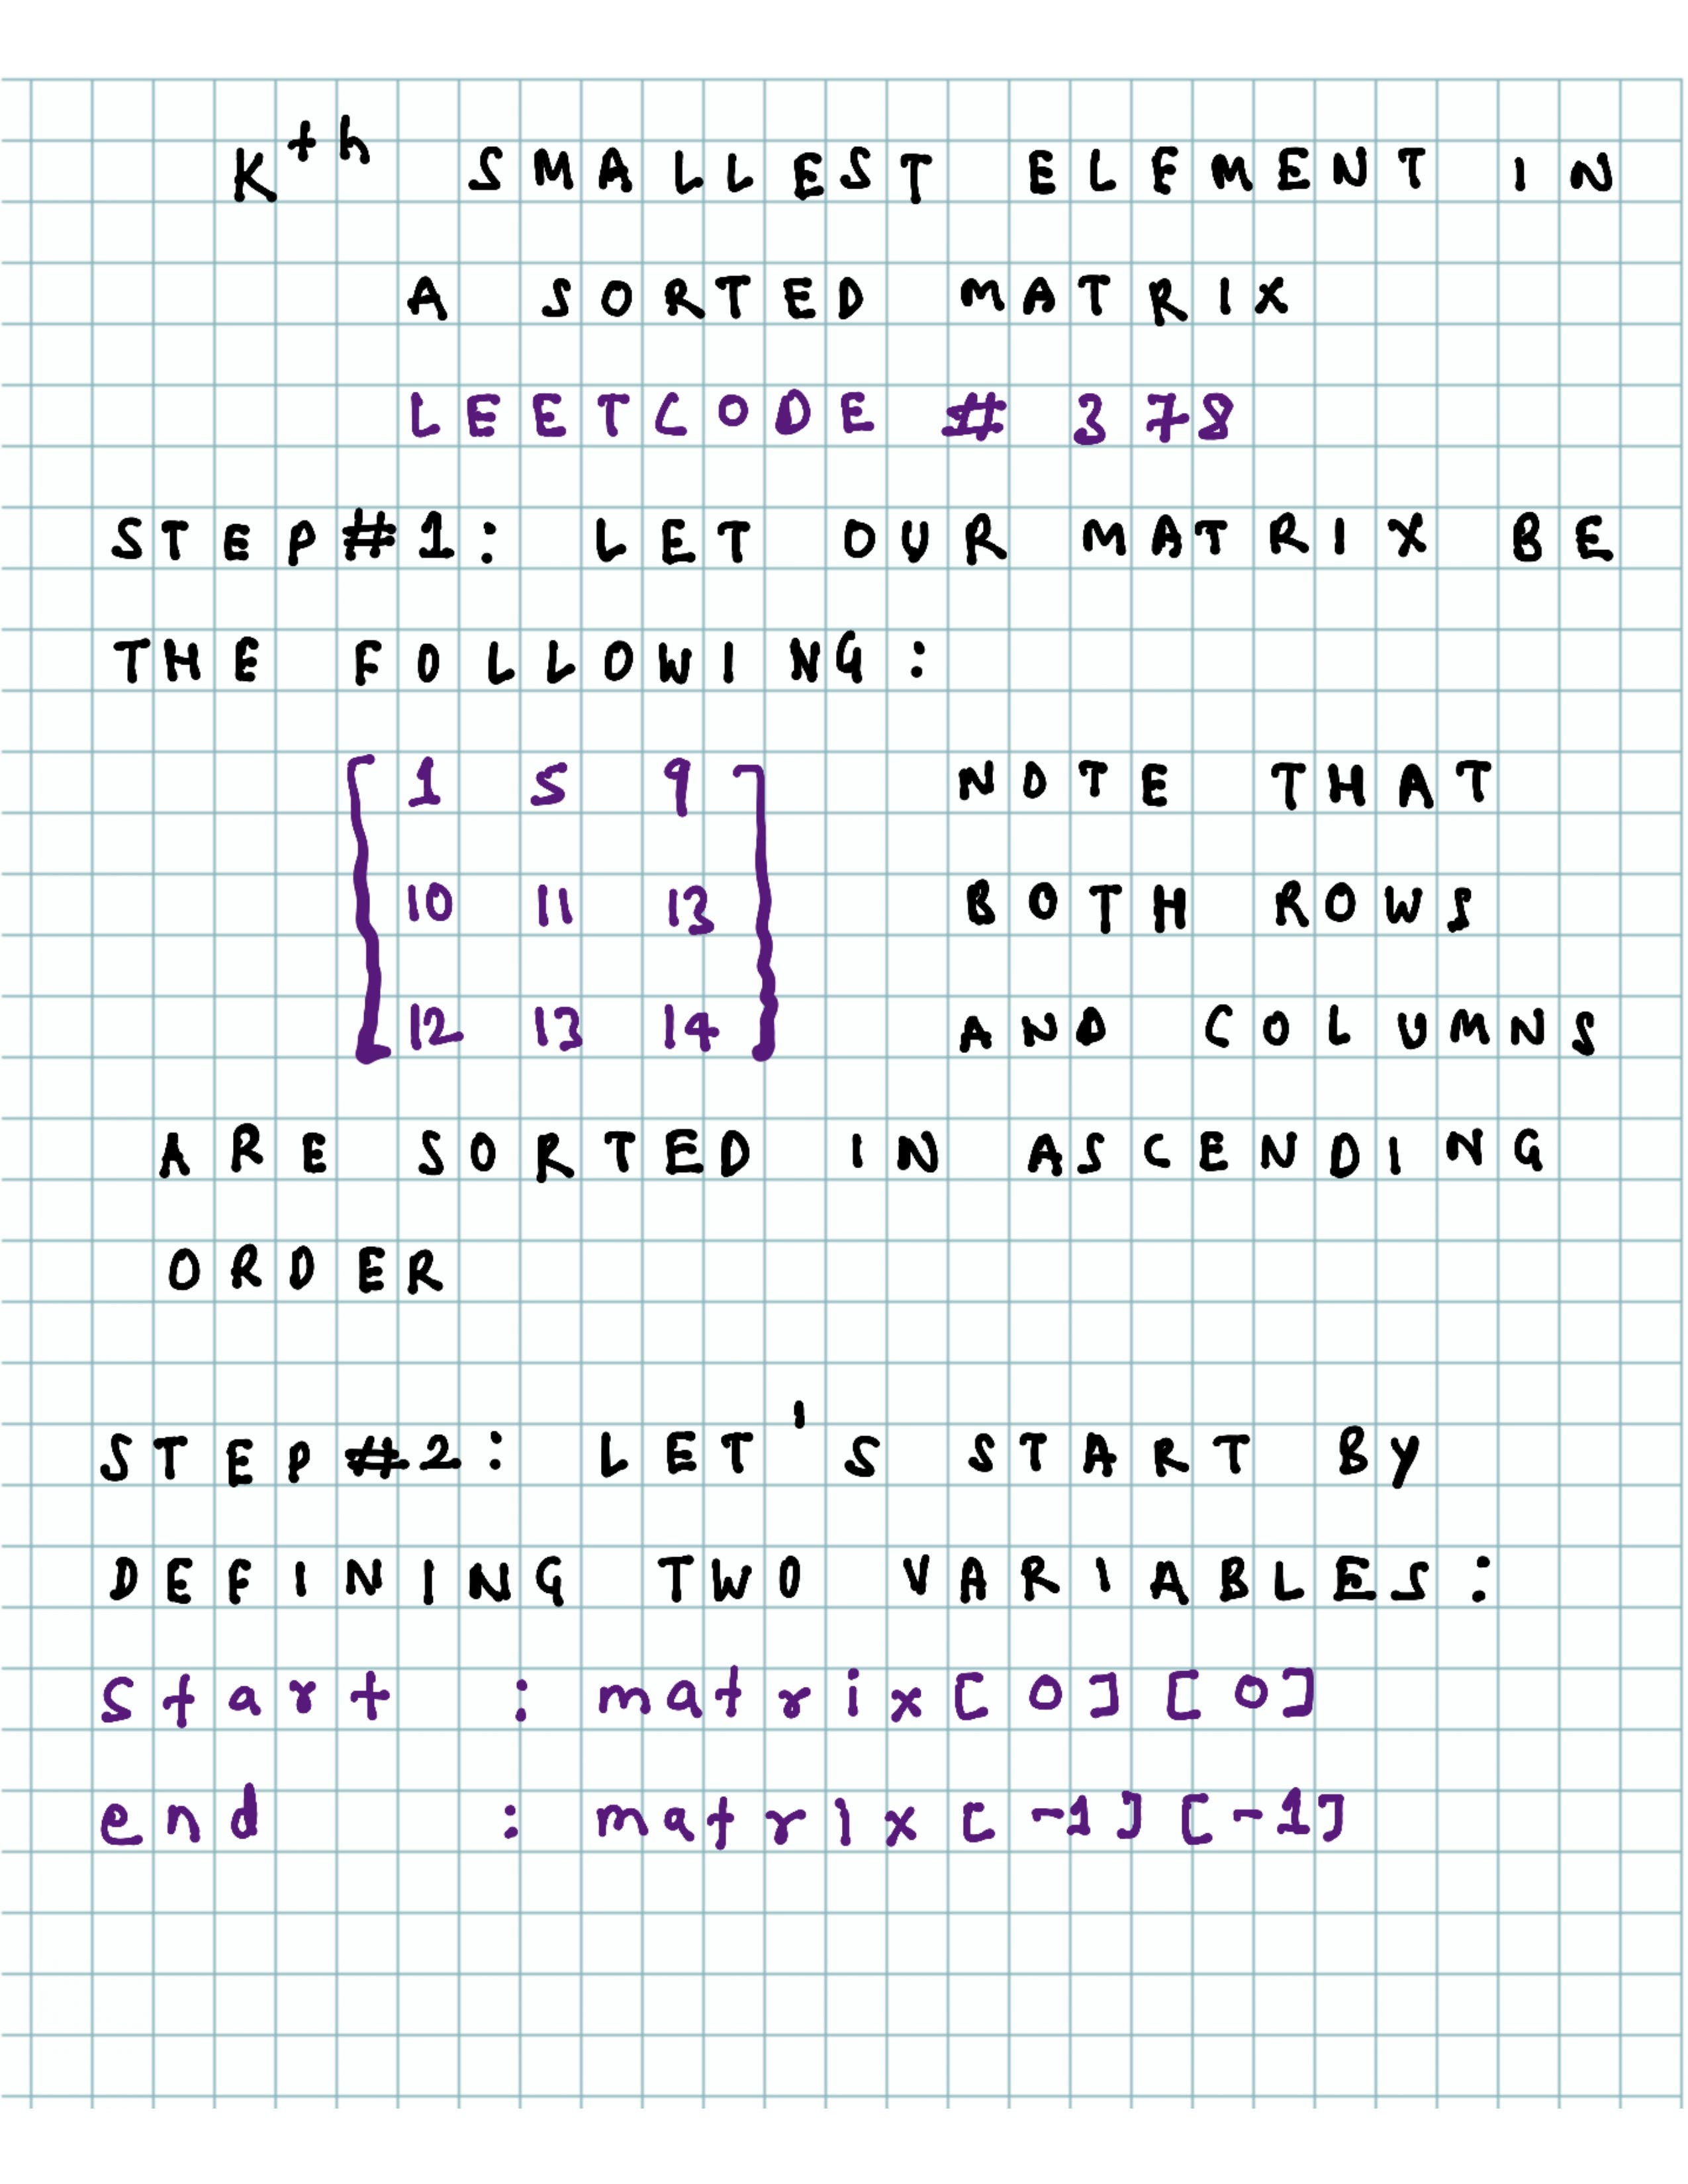 Kth SMALLEST ELEMENT IN
A SORTED MATRIX
LEETCODE # 378
STEP#1: LET OUR MATRIX BE
THE FOLLOWING:
1 5 9 NOTE THAT
10 11 13 BOTH ROWS
12 13 14 AND COLUMNS
ARE SORTED IN ASCENDING
ORDER
STEP #2: LET'S START BY
DEFINING TWO VARIABLES:
start : matrix[0][0]
end : matrix[-1][-1]